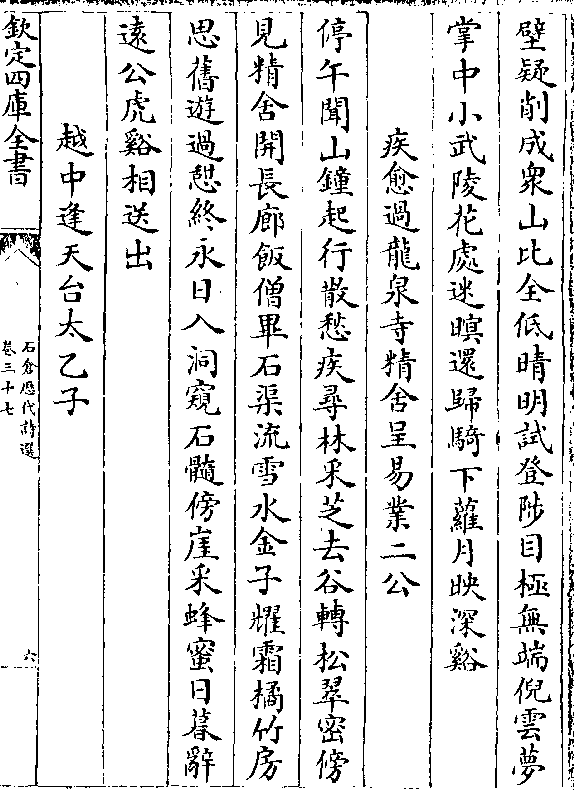 壁疑削成衆山比全低晴明試登陟目極無端倪雲夢
掌中小武陵花處迷暝還歸騎下蘿月映深谿
疾愈過龍泉寺精舍呈易業二公
停午聞山鐘起行散愁疾尋林采芝去谷轉松翠密傍
見精舍開長廊飯僧畢石渠流雪水金子耀霜橘竹房
思舊遊過憩終永日入洞窺石髓傍崖采蜂蜜日暮辭
遠公虎谿相送出
越中逢天台太乙子
欽定四庫全書
石倉歷代詩選
卷三十七
六